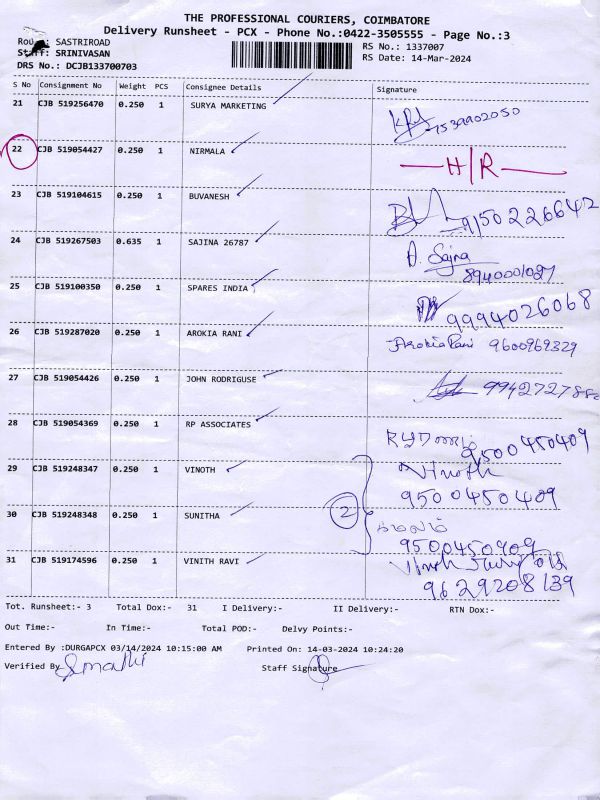 THE PROFESSIONAL COURIERS, COIMBATORE
Delivery Runsheet - PCX - Phone No.:0422-3505555 - Page No.:3
SASTRIROAD
RS No.: 1337007
Staff: SRINIVASAN
RS Date: 14-Mar-2024
DRS No.: DCJB133700703
S No Consignment No Weight PCS Consignee Details Signature
21 CJB 519256470 0.250 1 SURYA MARKETING 7539902050
22 CJB 519054427 0.250 1 NIRMALA H/R
23 CJB 519104615 0.250 1 BUVANESH 9150226642
24 CJB 519267503 0.635 1 SAJINA 26787 A. Sajna
8940001027
25 CJB 519100350 0.250 1 SPARES INDIA 9994026068
26 CJB 519287020 0.250 1 AROKIA RANI Arokia Rani 9600969329
27 CJB 519054426 0.250 1 JOHN RODRIGUSE
28 CJB 519054369 0.250 1 RP ASSOCIATES 9500450409
29 CJB 519248347 0.250 1 VINOTH Vinoth
9500450409
2
30 CJB 519248348 0.250 1 SUNITHA
9500450409
31 CJB 519174596 0.250 1 VINITH RAVI
9629208139
Tot. Runsheet:- 3 Total Dox:- 31 I Delivery:- II Delivery:- RTN Dox:-
Out Time:- In Time:- Total POD:- Delvy Points:-
Entered By :DURGAPCX 03/14/2024 10:15:00 AM Printed On: 14-03-2024 10:24:20
Verified By Staff Signature